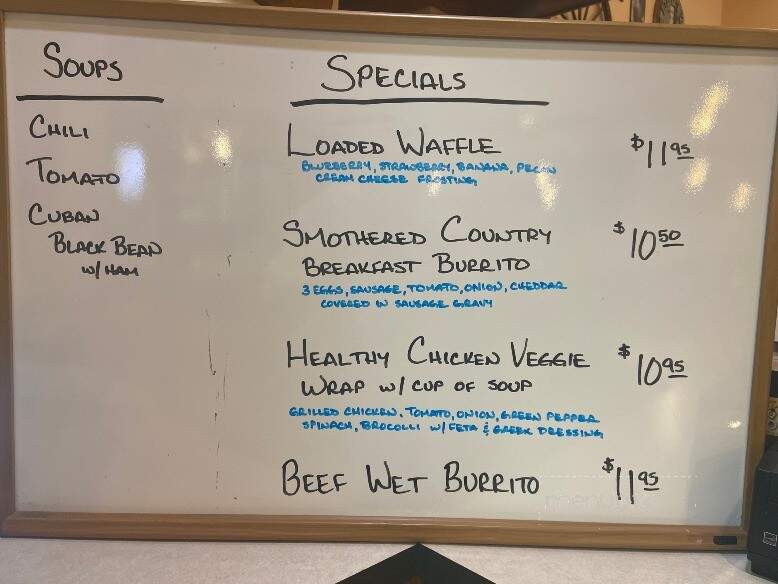 SOUPS
CHILI
TOMATO
CUBAN
BLACK BEAN
W/ HAM
SPECIALS
LOADED WAFFLE $11.95
BLUEBERRY, STRAWBERRY, BANANA, PECAN
CREAM CHEESE FROSTING,
SMOTHERED COUNTRY $10.50
BREAKFAST BURRITO
3 EGGS, SAUSAGE, TOMATO, ONION, CHEDDAR
COVERED IN SAUSAGE GRAVY
HEALTHY CHICKEN VEGGIE $10.95
WRAP W/ CUP OF SOUP
GRILLED CHICKEN, TOMATO, ONION, GREEN PEPPER
SPINACH, BROCOLLI W/ FETA & GREEK DRESSING,
BEEF WET BURRITO $11.95